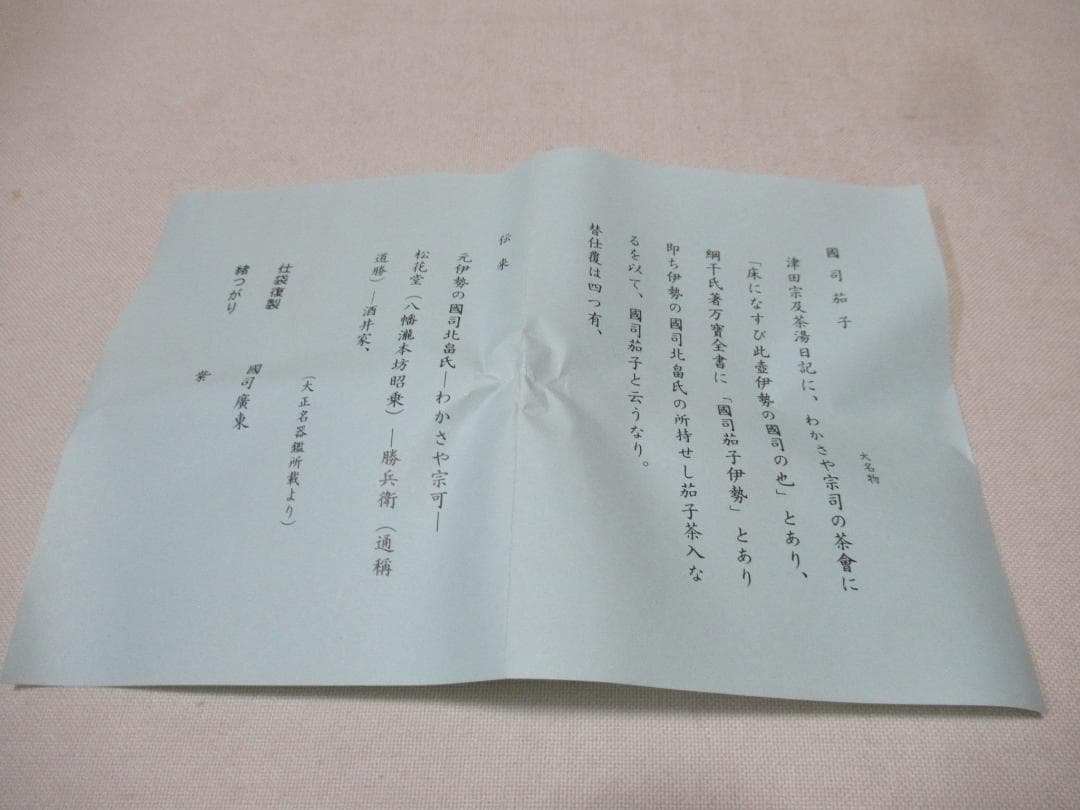 國司茄子　大名物
津田宗及茶湯日記に、わかさや宗司の茶會に
「床になすび此壺伊勢の國司の也」とあり、
網干氏著万寶全書に「國司茄子伊勢」とあり
即ち伊勢の國司北畠氏の所持せし茄子茶入な
るを以て、國司茄子と云うなり。
替仕覆は四つ有、
伝来
元伊勢の國司北畠氏―わかさや宗可―
松花堂（八幡瀧本坊昭乗）―勝兵衛（通稱
道勝）―酒井家、
（大正名器鑑所載より）
仕袋復製　國司廣東
緒つがり　紫